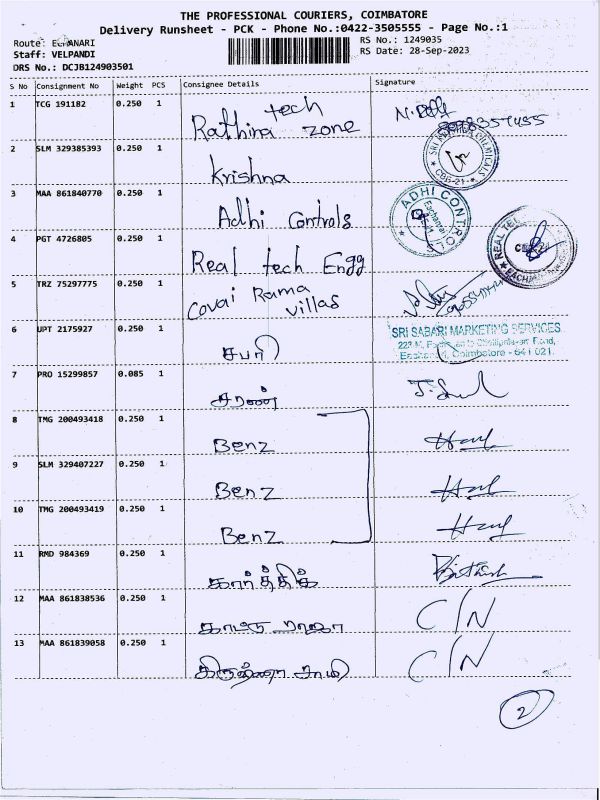 THE PROFESSIONAL COURIERS, COIMBATORE
Delivery Runsheet - PCK - Phone No.:0422-3505555 - Page No.:1
Route: ECHANARI
RS No.: 1249035
Staff: VELPANDI
RS Date: 28-Sep-2023
DRS No.: DCJB124903501
S No Consignment No Weight PCS Consignee Details Signature
1 TCG 191182 0.250 1 Rathina tech zone
2 SLM 329385393 0.250 1 Krishna
SRI CHEMICALS
CBE-21
3 MAA 861840770 0.250 1 Adhi Controls
ADHI CONTROLS
4 PGT 4726805 0.250 1 Real tech Engg
REAL TEC
5 TRZ 75297775 0.250 1 Covai Rama villas
6 UPT 2175927 0.250 1 சபரி
SRI SABARI MARKETING SERVICES
Coimbatore - 641 021.
7 PRO 15299857 0.085 1 சரவண்
8 TMG 200493418 0.250 1 Benz
9 SLM 329407227 0.250 1 Benz
10 TMG 200493419 0.250 1 Benz
11 RMD 984369 0.250 1 கார்த்திக்
12 MAA 861838536 0.250 1 C/N
13 MAA 861839058 0.250 1 C/N
2